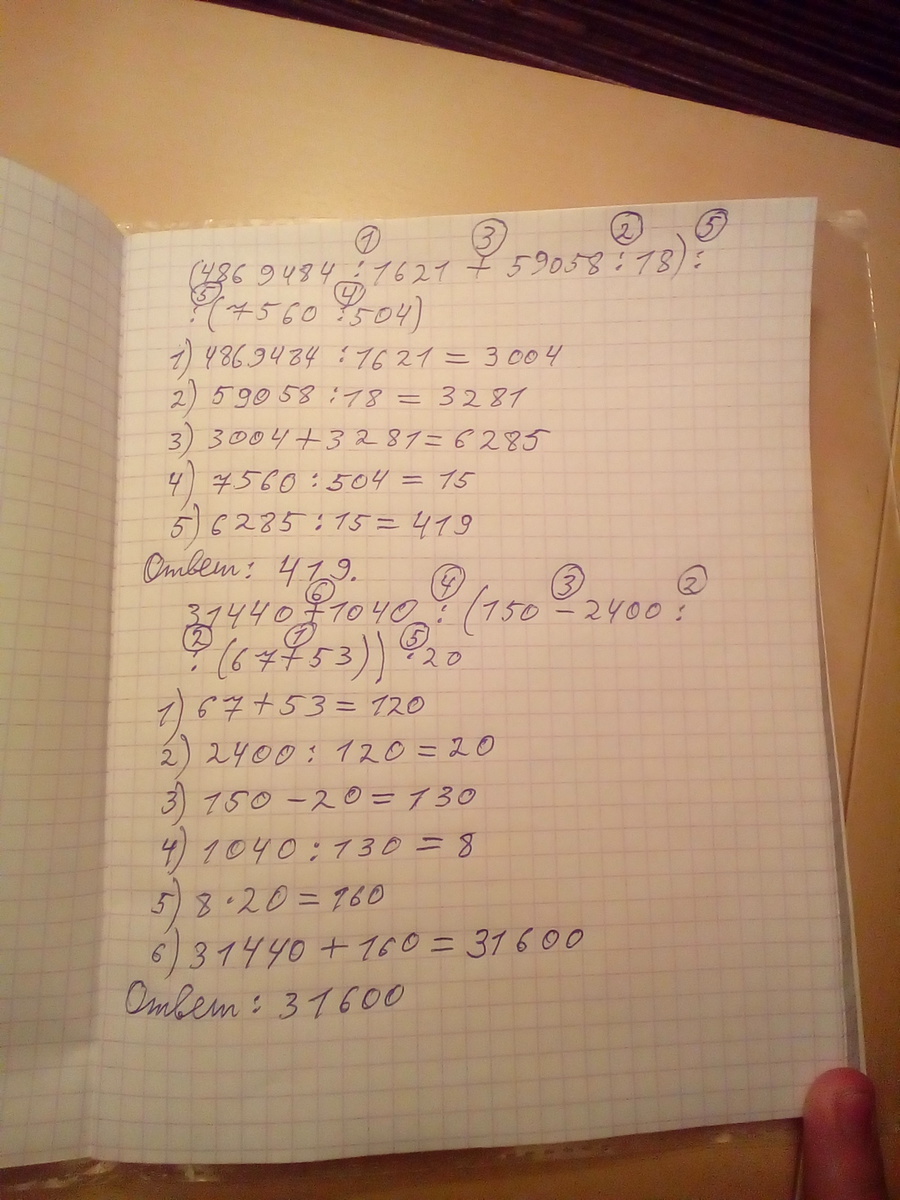 (4869484 : 1621 + 59058 : 18) :
: (7560 : 504)
1) 4869484 : 1621 = 3004
2) 59058 : 18 = 3281
3) 3004 + 3281 = 6285
4) 7560 : 504 = 15
5) 6285 : 15 = 419
Ответ: 419.
31440 + 1040 : (150 - 2400 :
: (67 + 53)) · 20
1) 67 + 53 = 120
2) 2400 : 120 = 20
3) 150 - 20 = 130
4) 1040 : 130 = 8
5) 8 · 20 = 160
6) 31440 + 160 = 31600
Ответ: 31600